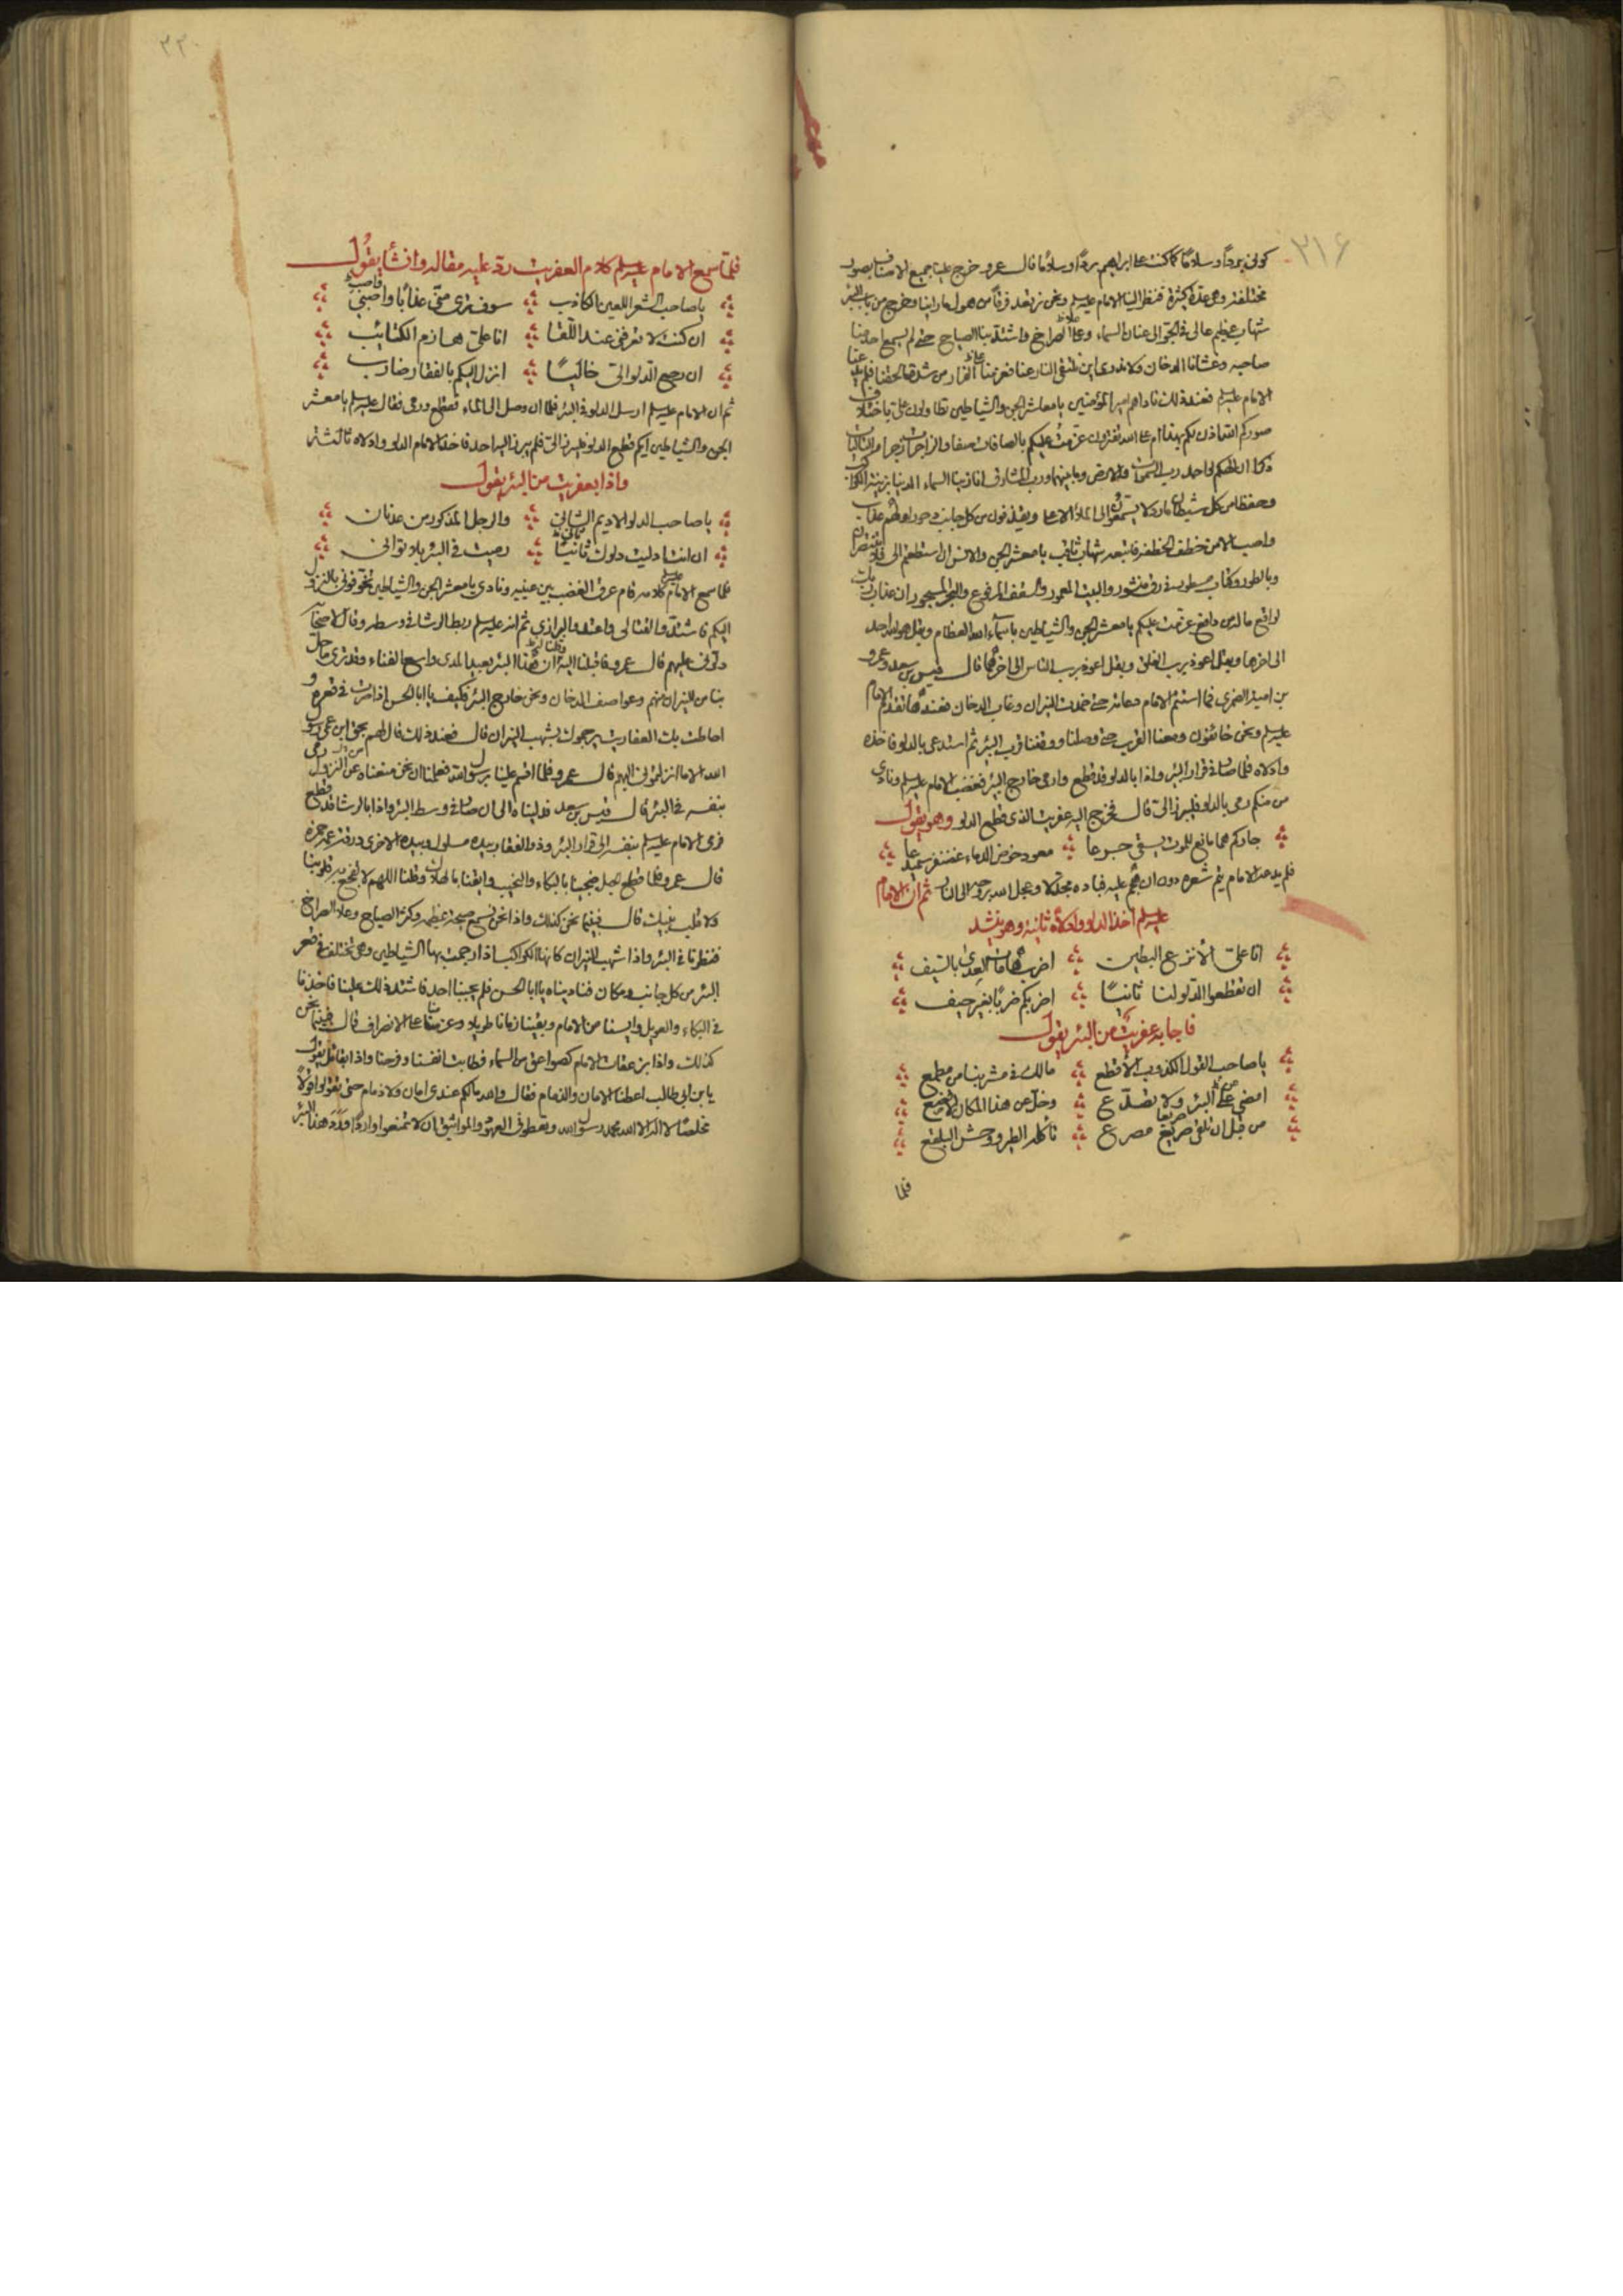 ٣١٦
كوني بردًا وسلامًا كما كنت على ابراهيم بردًا وسلامًا قال عمرو خرج علينا جميع الاصناف بصور
مختلفة وهي عدة كثيرة فنظر الينا الامام عليه السلم ونحن نرتعد فرقًا من هول ما راينا وخرج من باب البئر
شهاب عظيم عالي في الجو الى عنان السماء وعلا الصراخ واشتد بنا الصياح حتى لم يسمع احد منا
صاحبه وغشانا الدخان ولا ندري اين نلتقي النار عنا فعزمنا على الفرار من شدة
الامام عليه السلم فعند ذلك ناداهم امير المؤمنين يا معاشر الجن والشياطين تطاولون علي باختلاف
صوركم الله اذن لكم بهذا ام على الله تفترون عزمت عليكم بالصافات صفا والزاجرات زجرا فالتاليات
ذكرا ان الهكم لواحد رب السموات والارض وما بينهما ورب المشارق انا زينا السماء الدنيا بزينة الكواكب
وحفظا من كل شيطان مارد لا يسمعون الى الملأ الاعلى ويقذفون من كل جانب دحورا ولهم عذاب
واصب الا من خطف الخطفة فاتبعه شهاب ثاقب يا معشر الجن والانس ان استطعتم الى فلا تنتصران
وبالطور وكتاب مسطور في رق منشور والبيت المعمور والسقف المرفوع والبحر المسجور ان عذاب ربك
لواقع ما له من دافع عزمت عليكم يا معشر الجن والشياطين باسماء الله العظام وبقل هو الله احد
الى اخرها وبقل اعوذ برب الفلق وبقل اعوذ برب الناس الى اخرها قال قيس بن سعد وعمرو
بن امية الضمري فما استتم الامام دعائه حتى خمدت النيران وغاب الدخان فعندها تقدم الامام
عليه السلم ونحن خائفون ومعنا القرب حتى وصلنا ووقفنا قرب البئر ثم استدعى بالدلو فاخذه
وادلاه فلما صار في قرار البئر واذا بالدلو قد قطع وارمي خارج البئر فغضب الامام عليه السلم ونادى
من منكم رمى بالدلو فليبرز الي قال فخرج اليه عفريت الذي قطع الدلو وهو يقول
جاءكم همام مانع للموت يسقي جرعا معود خوض الدماء غضنفر سميدعا
فلم يدعه الامام يتم شعره دون ان هجم عليه فباده مجدلا وعجل الله بروحه الى النار ثم ان الامام
عليه السلم اخذ الدلو وادلاه ثانية وهو ينشد
انا علي الانزع البطين اضرب هامات العدى بالسيف
ان تقطعوا الدلو لنا ثانيًا اضربكم ضربًا بغير حيف
فاجابه عفريت من البئر يقول
يا صاحب القول الكذوب الاقطع مالك في مشربنا من مطمع
امضي عن البئر ولا تضلّع وخل عن هذا المكان
من قبل ان تلقى صريع مصرع تأكله الطير ووحش البلقع
فلما
٣٢٠
فلمّا سمع الامام عليه السلم كلام العفريت ردّ عليه مقاله وانشأ يقول
يا صاحب الشعر اللعين الكاذب سوف ترى منّي عذابًا واصبِ
ان كنت لا تعرفني عند اللّقا انا علي هازم الكتائب
ان رجع الدلو الي خاليًا انزل اليكم بالفقار ضارب
ثم ان الامام عليه السلم ارسل الدلو في البئر فلما ان وصل الى الماء قطع ورمي فقال عليه السلم يا معشر
الجن والشياطين ايكم قطع الدلو فليبرز الي فلم يبرز اليه احد فاخذ الامام الدلو وادلاه ثالثة
واذا بعفريت من البئر يقول
يا صاحب الدلو الاديم الثاني والرجل المذكور من عدنان
ان انت ادليت دلوك ثانيًا رميت في البئر بلا تواني
فلما سمع الامام عليه السلم كلامه قام عرق الغضب بين عينيه ونادى يا معشر الجن والشياطين تخوفوني بالنزول
اليكم فاشتد والقتالي واعتدوا لبرازي ثم انه عليه السلم ربط الرشا في وسطه وقال لاصحابه
دلوني عليهم قال عمرو فاقبلنا اليه وقلنا له ان هذا البئر بعيد المدى واسع الفناء وقد ترى ما حل
بنا من النيران منهم وعواصف الدخان ونحن خارج البئر فكيف يا ابا الحسن اذا صرت في قعره و
احاطت بك العفاريت يرجموك بشهب النيران قال فعند ذلك قال لهم بحق ابن عمي رسول
الله الا ما انزلتموني اليهم قال عمرو فلما اقسم علينا برسول الله فعلمنا ان نحن منعناه عن النزول رمى
بنفسه في البئر قال قيس بن سعد فدليناه الى ان صار في وسط البئر واذا بالرشا قد قطع
فرمى الامام عليه السلم بنفسه الى قرار البئر وذو الفقار بيده مسلول وبيده الاخرى درقة عمه حمزة
قال عمرو فلما قطع الحبل ضجينا بالبكاء والنحيب وايقنا بالهلاك وقلنا اللهم لا تفجع به قلوبنا
ولا قلب نبيك قال فبينما نحن كذلك واذا نحن نسمع صيحة عظيمة وكثر الصياح وعلا الصراخ
فنظرنا في البئر واذا شهب النيران كانها الكواكب اذا رجمت بها الشياطين وهي تختلف في قعر
البئر من كل جانب ومكان فناديناه يا ابا الحسن فلم يجيبنا احد فاشتد ذلك علينا فاخذنا
في البكاء والعويل وايسنا من الامام وبقينا زمانا طويلا وعزمنا على الانصراف قال فبينما نحن
كذلك واذا بزعقات الامام كصواعق من السماء فطابت انفسنا وفرحنا واذا بقائل يقول
يا بن ابي طالب اعطنا الامان والذمام فقال والله مالكم عندي امان ولا ذمام حتى تقولوا قولًا
مخلصًا لا اله الا الله محمد رسول الله وتعطوني العهود والمواثيق ان لا تمنعوا واردًا ورد هذا البئر